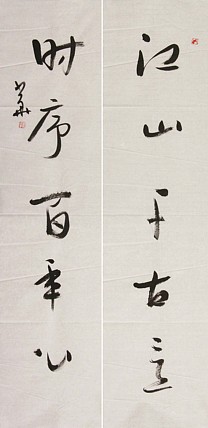 江山千古意
时序百年心